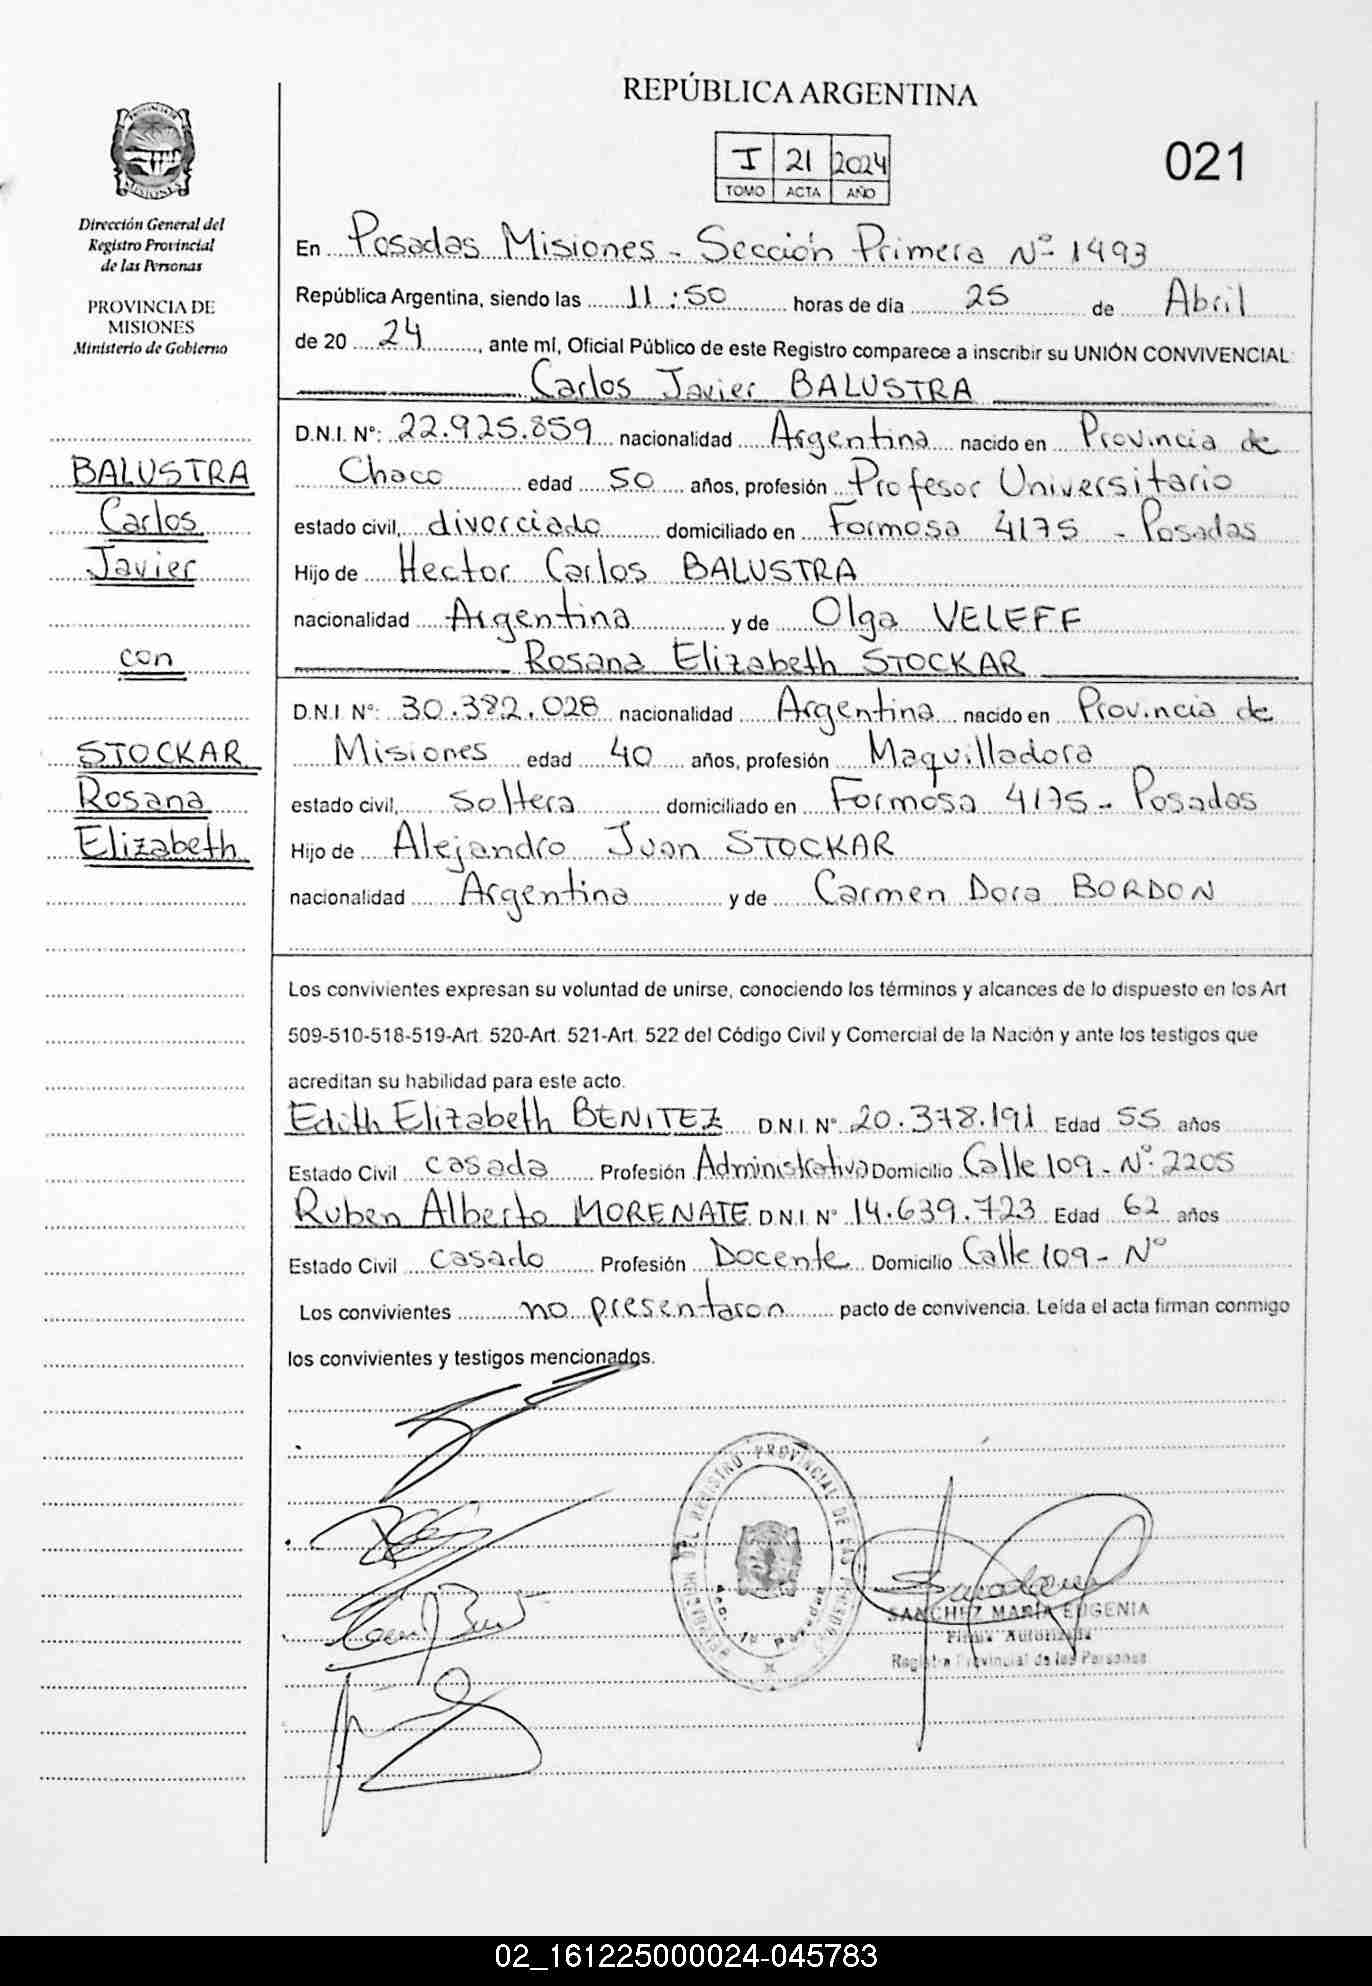 REPÚBLICA ARGENTINA
I 21 2024
TOMO ACTA AÑO
021
MISIONES
Dirección General del
Registro Provincial
de las Personas
PROVINCIA DE
MISIONES
Ministerio de Gobierno
BALUSTRA
Carlos
Javier
con
STOCKAR
Rosana
Elizabeth
En Posadas Misiones - Sección Primera Nº 1493
República Argentina, siendo las 11:50 horas de dia 25 de Abril
de 20 24, ante mí, Oficial Público de este Registro comparece a inscribir su UNIÓN CONVIVENCIAL:
Carlos Javier BALUSTRA
D.N.I. Nº: 22.925.859 nacionalidad Argentina nacido en Provincia de
Chaco edad 50 años, profesión Profesor Universitario
estado civil, divorciado domiciliado en Formosa 4175 - Posadas
Hijo de Hector Carlos BALUSTRA
nacionalidad Argentina y de Olga VELEFF
Rosana Elizabeth STOCKAR
D.N.I. Nº: 30.382.028 nacionalidad Argentina nacido en Provincia de
Misiones edad 40 años, profesión Maquilladora
estado civil, soltera domiciliado en Formosa 4175 - Posadas
Hijo de Alejandro Juan STOCKAR
nacionalidad Argentina y de Carmen Dora BORDON
Los convivientes expresan su voluntad de unirse, conociendo los términos y alcances de lo dispuesto en los Art
509-510-518-519-Art. 520-Art. 521-Art. 522 del Código Civil y Comercial de la Nación y ante los testigos que
acreditan su habilidad para este acto.
Edith Elizabeth BENITEZ D.N.I. Nº 20.378.191 Edad 55 años
Estado Civil casada Profesión Administrativa Domicilio Calle 109 - Nº 2205
Ruben Alberto MORENATE D.N.I. Nº 14.639.723 Edad 62 años
Estado Civil casado Profesión Docente Domicilio Calle 109 - Nº
Los convivientes no presentaron pacto de convivencia. Leída el acta firman conmigo
los convivientes y testigos mencionados.
DEL REGISTRO PROVINCIAL DE LAS PERSONAS
Sec. 1ª Posadas
SANCHEZ MARÍA EUGENIA
Firma Autorizada
Registro Provincial de las Personas
02_161225000024-045783